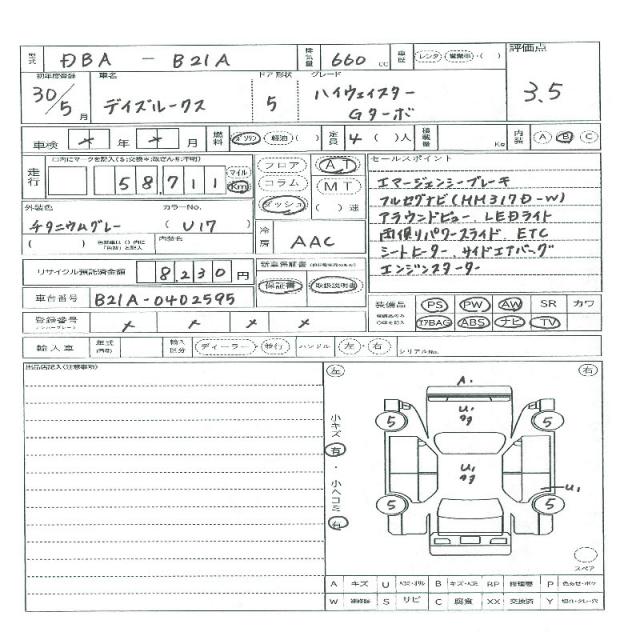 型式 DBA - B21A 排気量 660 cc 車歴 レンタ・営業中・( ) 評価点 3.5
初年度登録 車名 ドア 形状 グレード
30/5月 デイズルークス 5 ハイウェイスター
Gターボ
車検 年 月 燃料 ガソリン 軽油・( ) 定員 4 ( )人 積載量 Kg 内装 A B C
走行 □内にマークを記入($:交換 *:改ざん #:不明) 58,711 マイル Km フロア AT セールスポイント
コラム MT エマージェンシーブレーキ
ダッシュ ( )速 フルセグナビ(MM317D-W)
外装色 カラーNo. アラウンドビュー LEDライト
チタニウムグレー ( U17 冷房 AAC 両側パワースライド ETC
( ) 内装色 シートヒーター サイドエアバッグ
リサイクル預託済金額 8,230円 新車保証書 エンジンスターター
車台番号 B21A-0402595 保証書 取扱説明書 装備品 PS PW AW SR カワ
登録番号 T7BAG ABS ナビ TV
輸入車 年式 輸入区分 ディーラー・並行 ハンドル 左・右 シリアルNo.
出品店記入(注意事項) 左 右
A
U1
小キズ 有・小ヘコミ 有
5 5
U1
U1
5 5
スペア
A キズ U B RP P
W S サビ C 腐食 XX 交換済 Y